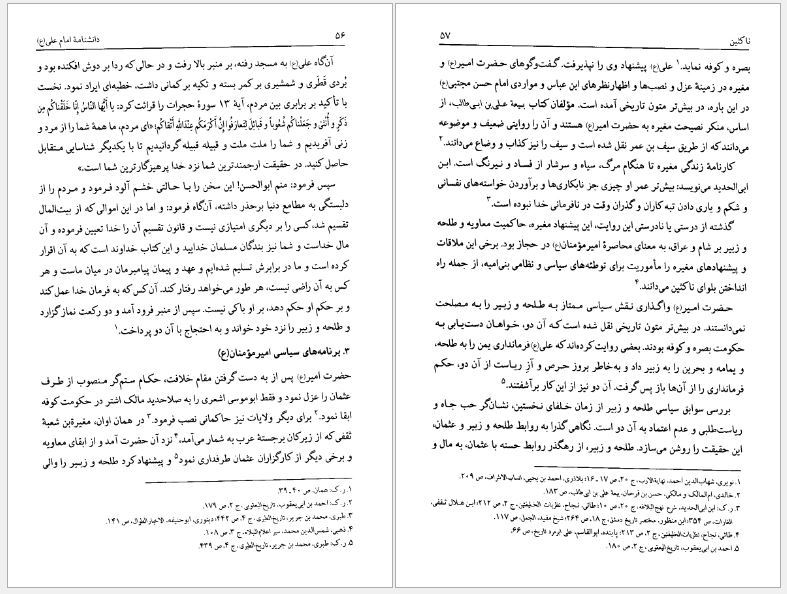 ۵۶
دانشنامهٔ امام علی(ع)
آن‌گاه علی(ع) به مسجد رفته، بر منبر بالا رفت و در حالی که ردا بر دوش افکنده بود و
بُردی قَطَری و شمشیری بر کمر بسته و تکیه بر کمانی داشت، خطبه‌ای ایراد نمود. نخست
با تأکید بر برابری بین مردم، آیهٔ ۱۳ سورهٔ حجرات را قرائت کرد: یا أَیُّهَا النَّاسُ إِنَّا خَلَقْنَاکُم مِن
ذَکَرٍ وَ أُنْثَیٰ وَ جَعَلْنَاکُمْ شُعُوباً وَ قَبَائِلَ لِتَعَارَفُوا إِنَّ أَکْرَمَکُم عِنْدَاللهِ أَتْقَاکُم؛ «ای مردم، ما همهٔ شما را از مرد و
زنی آفریدیم و شما را ملت ملت و قبیله قبیله گردانیدیم تا با یکدیگر شناسایی متقابل
حاصل کنید. در حقیقت ارجمندترین شما نزد خدا پرهیزگارترین شما است.»
سپس فرمود: منم ابوالحسن! این سخن را با حالتی خشم آلود فرمود و مردم را از
دلبستگی به مطامع دنیا برحذر داشته، آن‌گاه فرمود: و اما در این اموالی که از بیت‌المال
تقسیم شد، کسی را بر دیگری امتیازی نیست و قانون تقسیم آن را خدا تعیین فرموده و آن
مال خداست و شما نیز بندگان مسلمان خدایید و این کتاب خداوند است که به آن اقرار
کرده است و ما در برابرش تسلیم شده‌ایم و عهد و پیمان پیامبرمان در میان ماست و هر
کس به آن راضی نیست، هر طور می‌خواهد رفتار کند. آن کس که به فرمان خدا عمل کند
و بر حکم او حکم دهد، بر او باکی نیست. سپس از منبر فرود آمد و دو رکعت نماز گزارد
و طلحه و زبیر را نزد خود خواند و به احتجاج با آن دو پرداخت.۱
۳. برنامه‌های سیاسی امیرمؤمنان(ع)
حضرت امیر(ع) پس از به دست گرفتن مقام خلافت، حکام ستم‌گر منصوب از طرف
عثمان را عزل نمود و فقط ابوموسی اشعری را به صلاحدید مالک اشتر در حکومت کوفه
ابقا نمود.۲ برای دیگر ولایات نیز حاکمانی نصب فرمود.۳ در همان اوان، مغیرة‌بن شعبهٔ
ثقفی که از زیرکان برجستهٔ عرب به شمار می‌آمد،۴ نزد آن حضرت آمد و از ابقای معاویه
و برخی دیگر از کارگزاران عثمان طرفداری نمود۵ و پیشنهاد کرد طلحه و زبیر را والی
۱. ر.ک: همان، ص ۴۰ ـ ۳۹.
۲. ر.ک: احمد بن ابی‌یعقوب، تاریخ الیعقوبی، ج ۲، ص ۱۷۹.
۳. طبری، محمد بن جریر، تاریخ الطبری، ج ۴، ص ۴۴۲؛ دینوری، ابوحنیفه، الاخبار الطوال، ص ۱۴۱.
۴. ذهبی، شمس‌الدین محمد، سیر اعلام النبلاء، ج ۳، ص ۱۰۸.
۵. ر.ک: طبری، محمد بن جریر، تاریخ الطبری، ج ۴، ص ۴۳۹.
ناکثین
۵۷
بصره و کوفه نماید.۱ علی(ع) پیشنهاد وی را نپذیرفت. گفت‌وگوهای حضرت امیر(ع) و
مغیره در زمینهٔ عزل و نصب‌ها و اظهارنظرهای ابن عباس و مواردی امام حسن مجتبی(ع)
در این باره، در بیش‌تر متون تاریخی آمده است. مؤلفان کتاب بیعة علی بن ابی‌طالب، از
اساس، منکر نصیحت مغیره به حضرت امیر(ع) هستند و آن را روایتی ضعیف و موضوعه
می‌دانند که از طریق سیف بن عمر نقل شده است و سیف را نیز کذاب و وضاع می‌دانند.۲
کارنامهٔ زندگی مغیره تا هنگام مرگ، سیاه و سرشار از فساد و نیرنگ است. ابن
ابی‌الحدید می‌نویسد: بیش‌تر عمر او چیزی جز نابکاری‌ها و برآوردن خواسته‌های نفسانی
و شکم و یاری دادن تبه کاران و گذران وقت در نافرمانی خدا نبوده است.۳
گذشته از درستی یا نادرستی این روایت، این پیشنهاد مغیره، حاکمیت معاویه و طلحه
و زبیر بر شام و عراق، به معنای محاصرهٔ امیرمؤمنان(ع) در حجاز بود. برخی این ملاقات
و پیشنهادهای مغیره را مأموریت برای توطئه‌های سیاسی و نظامی بنی‌امیه، از جمله راه
انداختن بلوای ناکثین می‌دانند.۴
حضرت امیر(ع) واگذاری نقش سیاسی ممتاز به طلحه و زبیر را به مصلحت
نمی‌دانستند. در بیش‌تر متون تاریخی نقل شده است که آن دو، خواهان دست‌یابی به
حکومت بصره و کوفه بودند. بعضی روایت کرده‌اند که علی(ع) فرمانداری یمن را به طلحه،
و یمامه و بحرین را به زبیر داد و به‌خاطر بروز حرص و آزِ ریاست از آن دو، حکم
فرمانداری را از آن‌ها باز پس گرفت. آن دو نیز از این کار برآشفتند.۵
بررسی سوابق سیاسی طلحه و زبیر از زمان خلفای نخستین، نشان‌گر حب جاه و
ریاست‌طلبی و عدم اعتماد به آن دو است. نگاهی گذرا به روابط طلحه و زبیر و عثمان،
این حقیقت را روشن می‌سازد. طلحه و زبیر، از رهگذر روابط حسنه با عثمان، به مال و
۱. نویری، شهاب‌الدین احمد، نهایة الارب، ج ۲۰، ص ۱۷ ـ ۱۶؛ بلاذری، احمد بن یحیی، انساب الاشراف، ص ۲۰۹.
۲. خالدی، ام‌المالک و مالکی، حسن بن فرحان، بیعة علی بن ابی طالب، ص ۱۸۳.
۳. ر.ک: ابن ابی‌الحدید، شرح نهج البلاغه، ج ۲۰، ص ۱۰؛ طائی، نجاح، نظریات الخلیفتین، ج ۲، ص ۲۱۲؛ ابن هلال ثقفی،
الغارات، ص ۳۵۴؛ ابن منظور، مختصر تاریخ دمشق، ج ۱۸، ص ۲۶۴؛ شیخ مفید، الجمل، ص ۱۱۷.
۴. طائی، نجاح، نظریات الخلیفتین، ج ۲، ص ۲۱۳؛ پاینده، ابوالقاسم، علی ابرمرد تاریخ، ص ۶۶.
۵. احمد بن ابی‌یعقوب، تاریخ الیعقوبی، ج ۲، ص ۱۸۰.